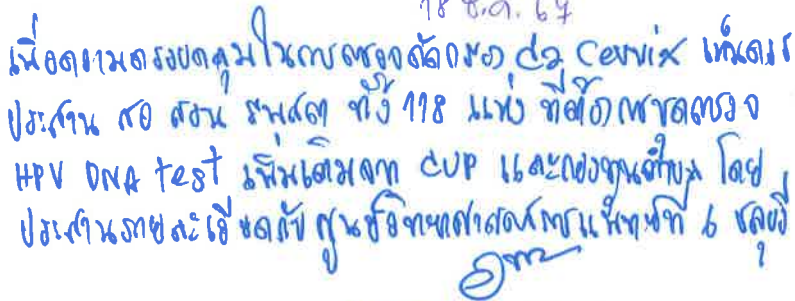 18 ธ.ค. 67
เพื่อความครอบคลุมในการตรวจคัดกรอง CA Cervix เห็นควร
ประสาน สอ สอน รพ.สต ทั้ง 118 แห่ง ที่ต้องการชุดตรวจ
HPV DNA test เพิ่มเติมจาก CUP และกองทุนตำบล โดย
ประสานรายละเอียดกับ ศูนย์วิทยาศาสตร์การแพทย์ที่ 6 ชลบุรี